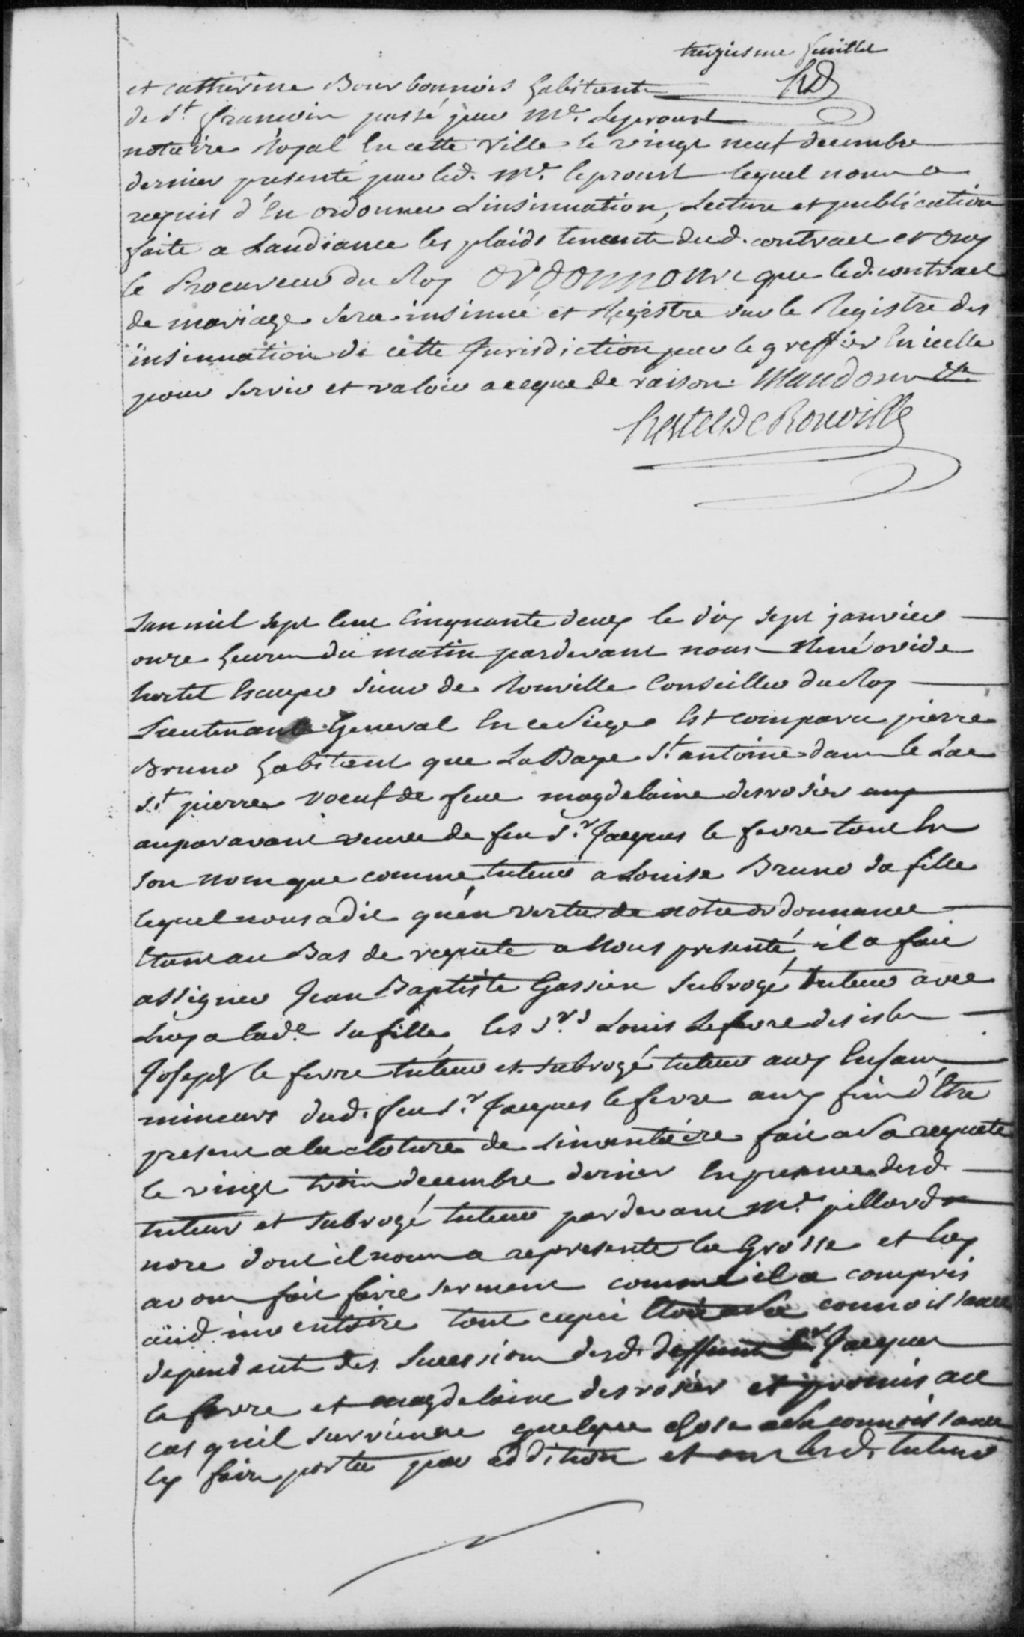 treizieme feuillet
HdR
et catherine Bourbonnois habitante
de St. francoin passé pav Me. Leproust
notaire Royal En cette ville le vingt neuf decembre
dernier presenté par led. Me. leproust lequel nous a
requis d'En ordonner Linsinuation, Lecture et publication
faite a Laudiance les plaids tenants dud. contract et Ouy
le Procureur du Roy Ordonnons que led. contract
de mariage sera insinué et Registre sur le Registre des
insinuation de cette Jurisdiction par le greffier En icelle
pour servir et valoir a ce que de raison Mandons &c
hertel de Rouville
Lan mil sept Cent Cinquante deux le dix sept janvier
onze heures du matin pardevant nous René ovide
hertel Escuyer sieur de Rouville Conseiller du Roy
Lieutenant General En ce siege Est comparu pierre
Bruno habitant que La Baye St. antoine dans le Lac
St. pierre voeuf de feue magdelaine desrosiers aup
auparavant veuve de feu Sr. Jacques le fevre tant En
son nom que comme tuteur a Louise Bruno sa fille
lequel nous a dit qu'en vertu de notre ordonnance
Etant au Bas de requete a Nous presenté, il a fait
assigner Jean Baptiste Gassien subrogé tuteur avec
Luy a lade. sa fille, les Srs. Louis Lefevre desisles
Joseph le fevre tuteur et subrogé tuteur aux Enfans
mineurs dud. feu Sr. Jacques lefevre aux fin d'Etre
present a la cloture de Linventaire fait a La requete
le vingt trois decembre dernier En presence desd.
tuteur et subrogé tuteur pardevant Me. pillard
nore dont il nous a representé la Grosse et luy
avons fait faire serment comme il a compris
aüd. inventaire tout ce qui Etoit a Sa connoissance
dependant des Successions desd. deffunts Sr. Jacques
le fevre et magdelaine desrosiers et promis au
cas qu'il survienne quelque chose a sa connoissance
Ly faire porter par addition et ont lesd. tuteur